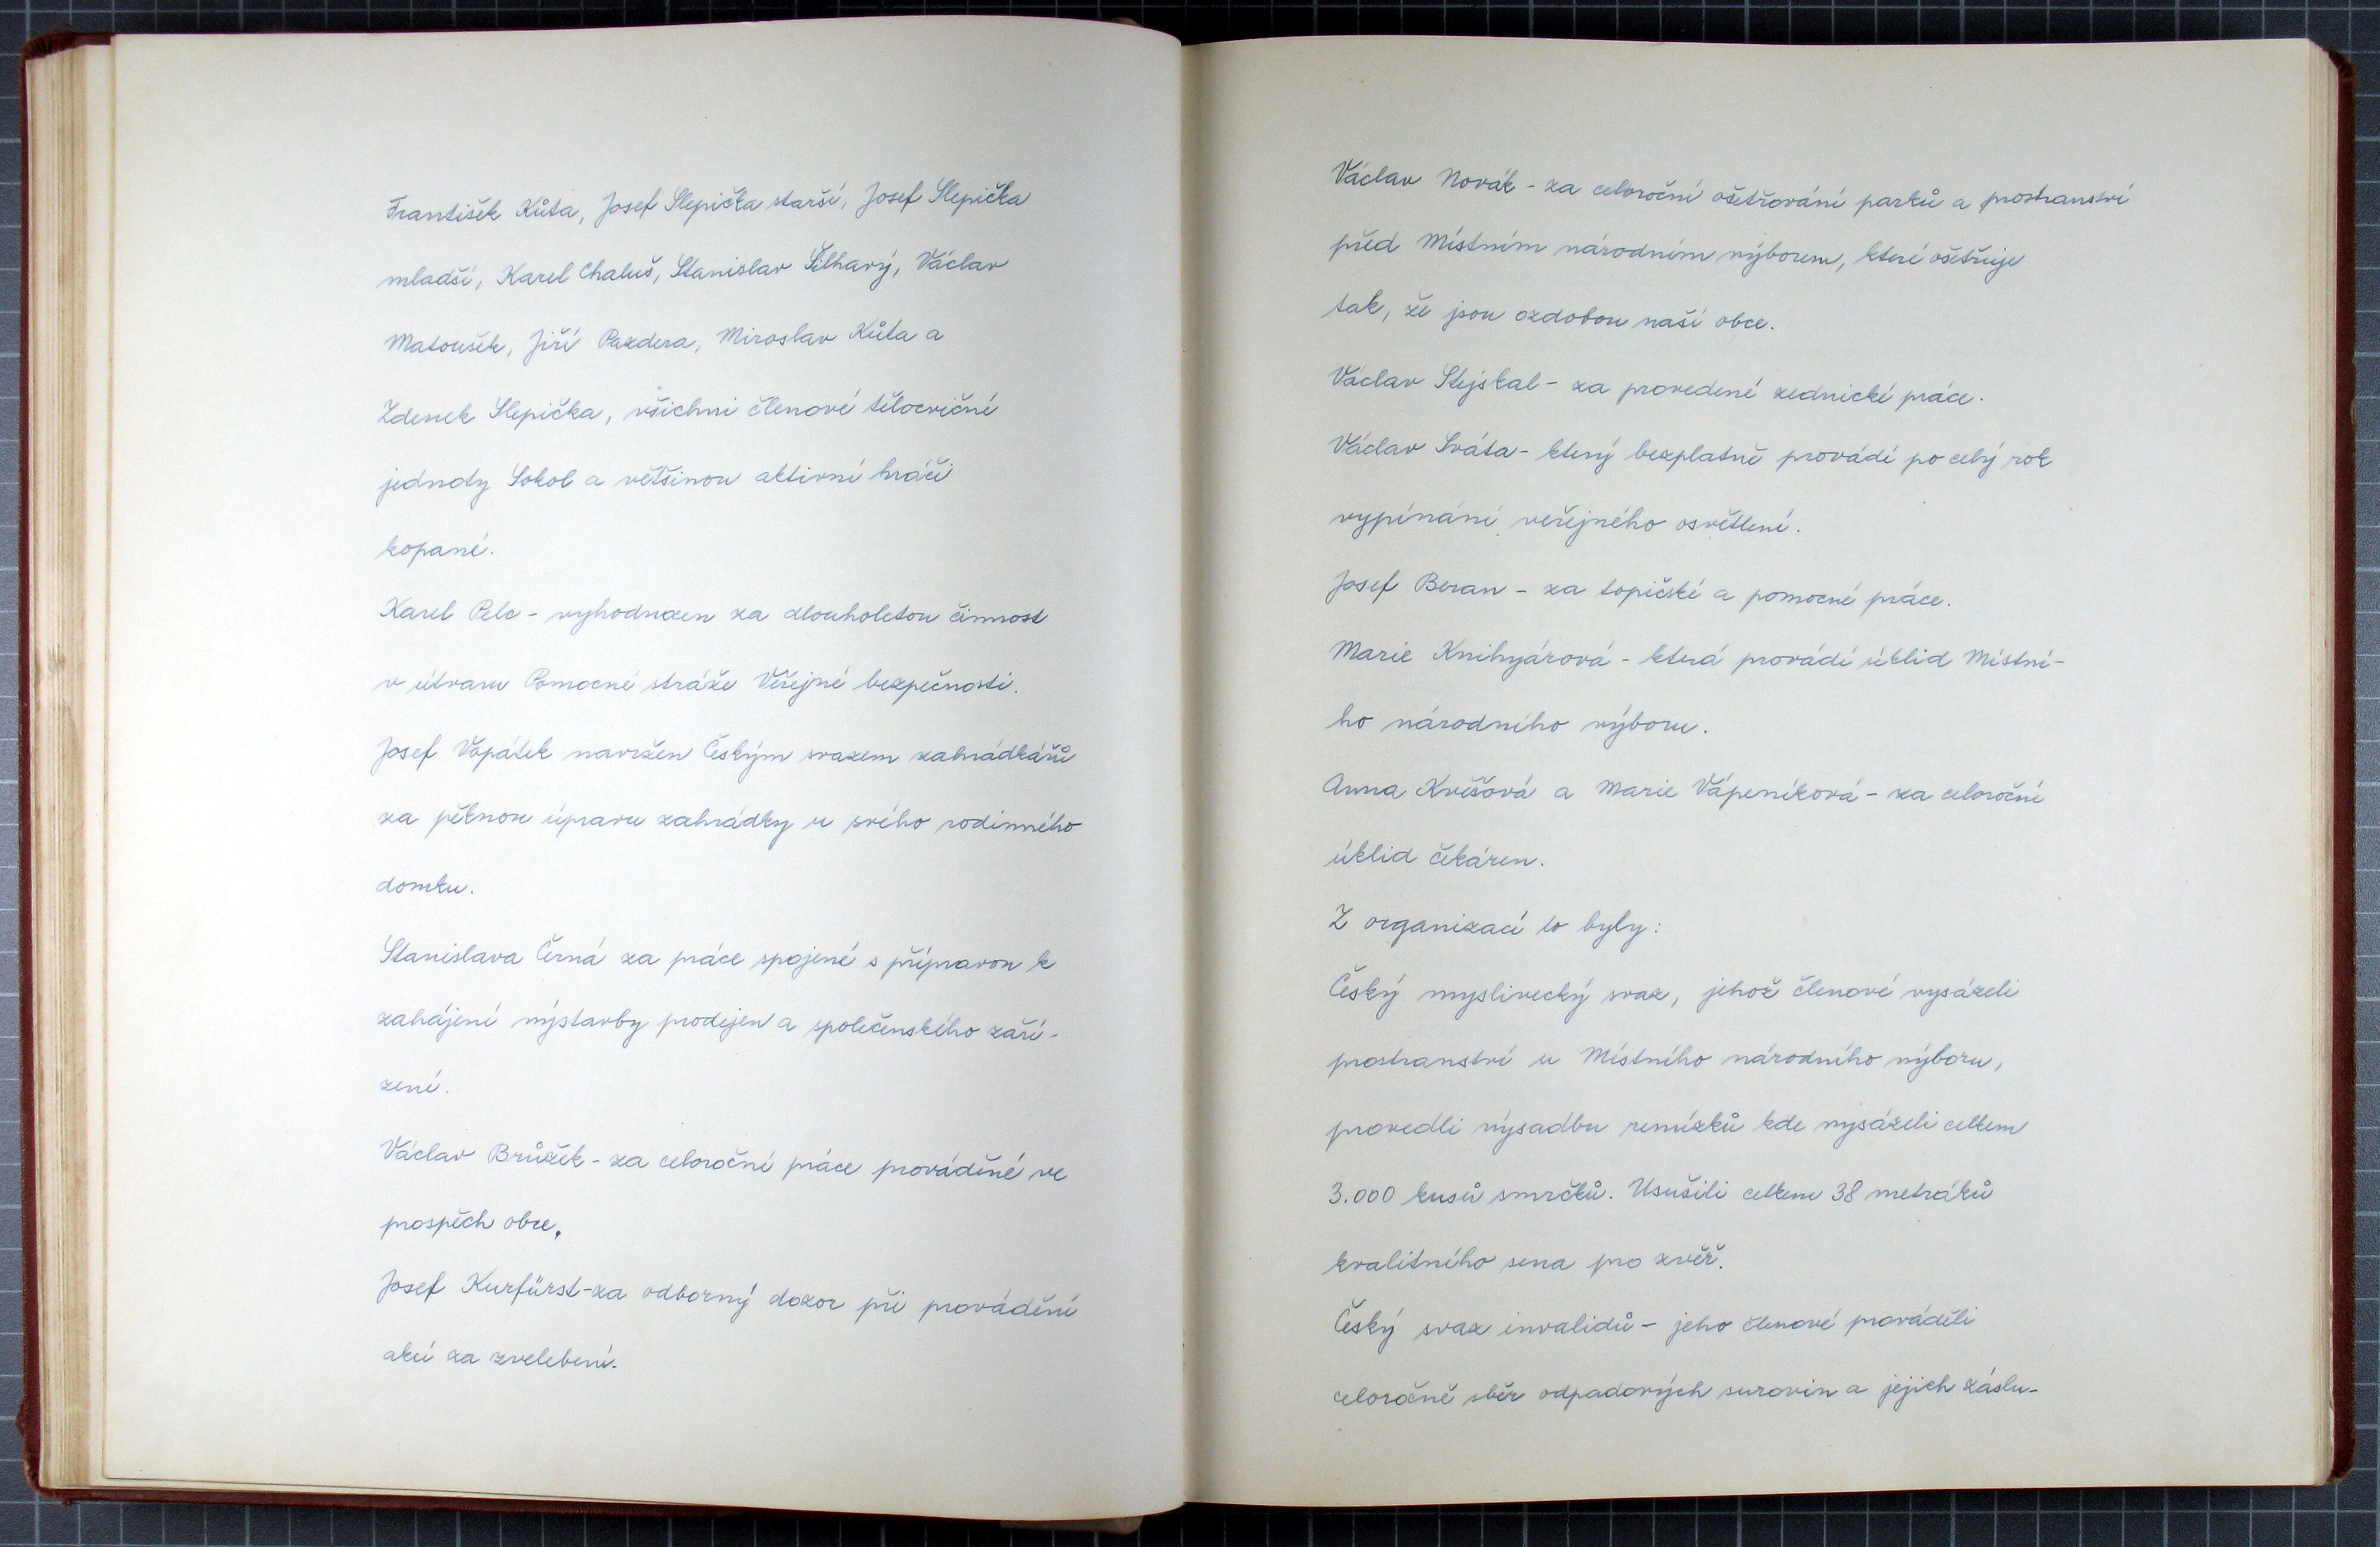 František Kůta, Josef Slepička starší, Josef Slepička
mladší, Karel Chaluš, Stanislav Šilhavý, Václav
Matoušek, Jiří Pazdera, Miroslav Kůta a
Zdenek Slepička, všichni členové tělocvičné
jednoty Sokol a většinou aktivní hráči
kopané.
Karel Pelc - vyhodnozen za dlouholetou činnost
v útvaru Pomocné stráže Veřejné bezpečnosti.
Josef Vopátek navržen Českým svazem zahrádkářů
za pěknou úpravu zahrádky u svého rodinného
domku.
Stanislava Černá za práce spojené s přípravou k
zahájení výstavby prodejen a společenského zaří-
zení.
Václav Brůžek - za celoroční práce prováděné ve
prospěch obce.
Josef Kurfürst - za odborný dozor při provádění
akcí za zvelebení.
Václav Novák - za celoroční ošetřování parků a prostranství
před Místním národním výborem, které ošetřuje
tak, že jsou ozdobou naší obce.
Václav Stejskal - za provedené zednické práce.
Václav Sváta - který bezplatně provádí po celý rok
vypínání veřejného osvětlení.
Josef Beran - za topičské a pomocné práce.
Marie Knihyárová - která provádí úklid Místní-
ho národního výboru.
Anna Kvěšová a Marie Vápeníková - za celoroční
úklid čekáren.
Z organizací to byly:
Český myslivecký svaz, jehož členové vysázeli
prostranství u Místního národního výboru,
provedli výsadbu remízků kde vysázeli celkem
3.000 kusů smrčků. Usušili celkem 38 metráků
kvalitního sena pro zvěř.
Český svaz invalidů - jeho členové prováděli
celoročně sběr odpadových surovin a jejich záslu-